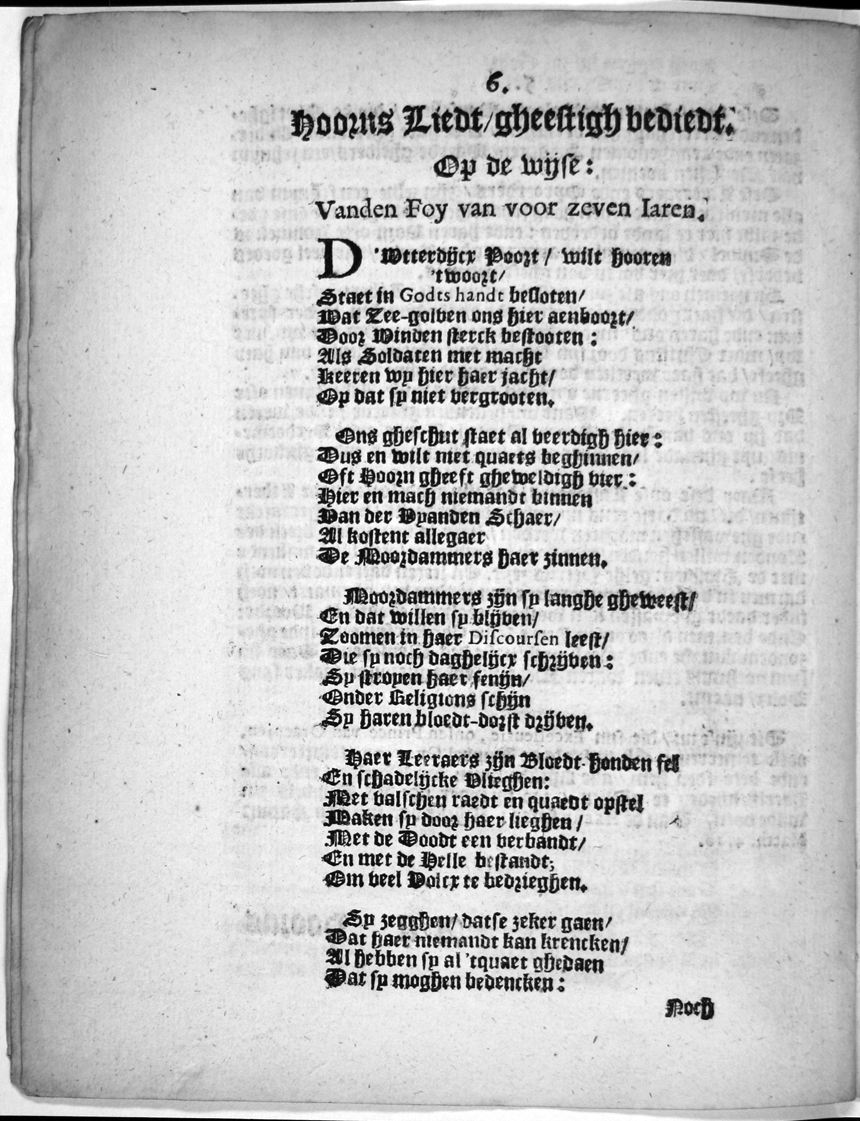 6.
Hoorns Liedt/gheestigh bediedt.
Op de wijse:
Vanden Foy van voor zeven Iaren.
D'Wtterdijcx Poort/ wilt hooren
'twoort/
Staet in Godts handt besloten/
Wat Zee-golven ons hier aenboort/
Door Winden sterck bestooten:
Als Soldaten met macht
Keeren wy hier haer jacht/
Op dat sy niet vergrooten.
Ons gheschut staet al veerdigh hier:
Dus en wilt niet quaets beghinnen/
Oft Hoorn gheeft gheweldigh vier:
Hier en mach niemandt binnen
Van der Vyanden Schaer/
Al kostent allegaer
De Moordammers haer zinnen.
Moordammers zijn sy langhe gheweest/
En dat willen sy blijven/
Zoomen in haer Discoursen leest/
Die sy noch daghelijcx schrijven:
Sy stropen haer fenijn/
Onder Religions schijn
Sy haren bloedt-dorst drijven.
Haer Leeraers zijn Bloedt-honden fel
En schadelijcke Vlieghen:
Met valschen raedt en quaedt opstel
Maken sy door haer lieghen/
Met de Doodt een verbandt/
En met de Helle bestandt;
Om veel Volcx te bedrieghen.
Sy zegghen/ datse zeker gaen/
Dat haer niemandt kan krencken/
Al hebben sy al 'tquaet ghedaen
Dat sy moghen bedencken:
Noch